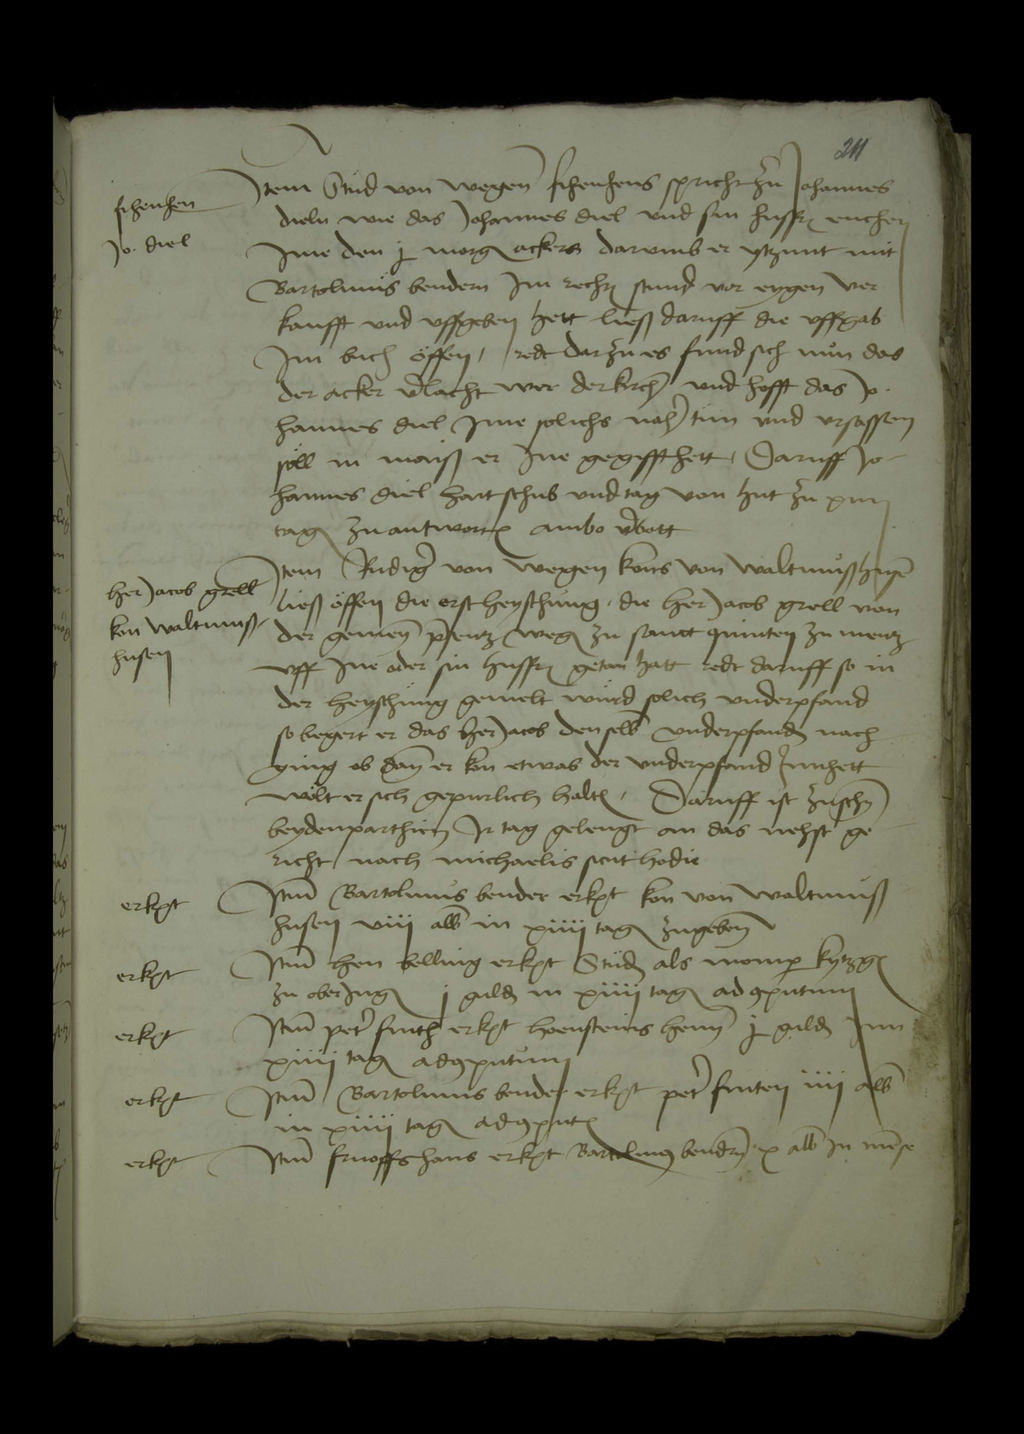 211
fihenhen
Jo. diel
Item Stud von wegen fihenhens spricht zu Johannes
dieln wie das Johannes diel und sin husfr
Ime den j morgen ackers darumb er ytzunt mit
Bartolmus bendern Im rechten stund vor eygen ver
kaufft und uffgeben hett ließ daruff die uffgab
Im buch öffen, redt darzu es fund sich nun das
der acker v̓lacht wer der kirchen und hofft das Jo-
hannes diel Ime solichs ture und ersassen
soll in maiß er Ine gegifft hett, Daruff Jo-
hannes diel hait schub und tag von hut zu xiiij
tagen zu antworten ambo v̓bott
her Jacob grell
kon waltmuß
husen
Item Rudiger von wegen kons von waltmußhusen
ließ öffen die erst heyschung, die her Jacob grell von
der gemeyn pfentz wegen zu sanct quinten zu mentz
uff Ine oder sin husfr getan hatt redt daruff so in
der heyschung gemelt wurd solich underpfand
so begert er das her Jacob denselben underpfanden nach
ging ob dan er kon etwas der underpfand Innhett
wolt er sich gepurlich halten, Daruff ist zuschen
beyden parthien Ir tag gelengt an das nehst ge
richt nach michaelis sicut hodie
erkt
Item Bartolmus bender erkt kon von waltmuß
husen viij alb in xiiij tagen zugeben
erkt
Item hen belling erkt Studen als momper
zu oberIngeln j gulden in xiiij tagen ad 9putum
erkt
Item peter snith erkt hoensteins henn j gulden Inn
xiiij tagen ad 9putum
erkt
Item Bartolmus bender erkt peter snten iiij alb
in xiiij tagen ad 9put
erkt
Item snoffshans erkt Bartolmus bendern x alb In mense